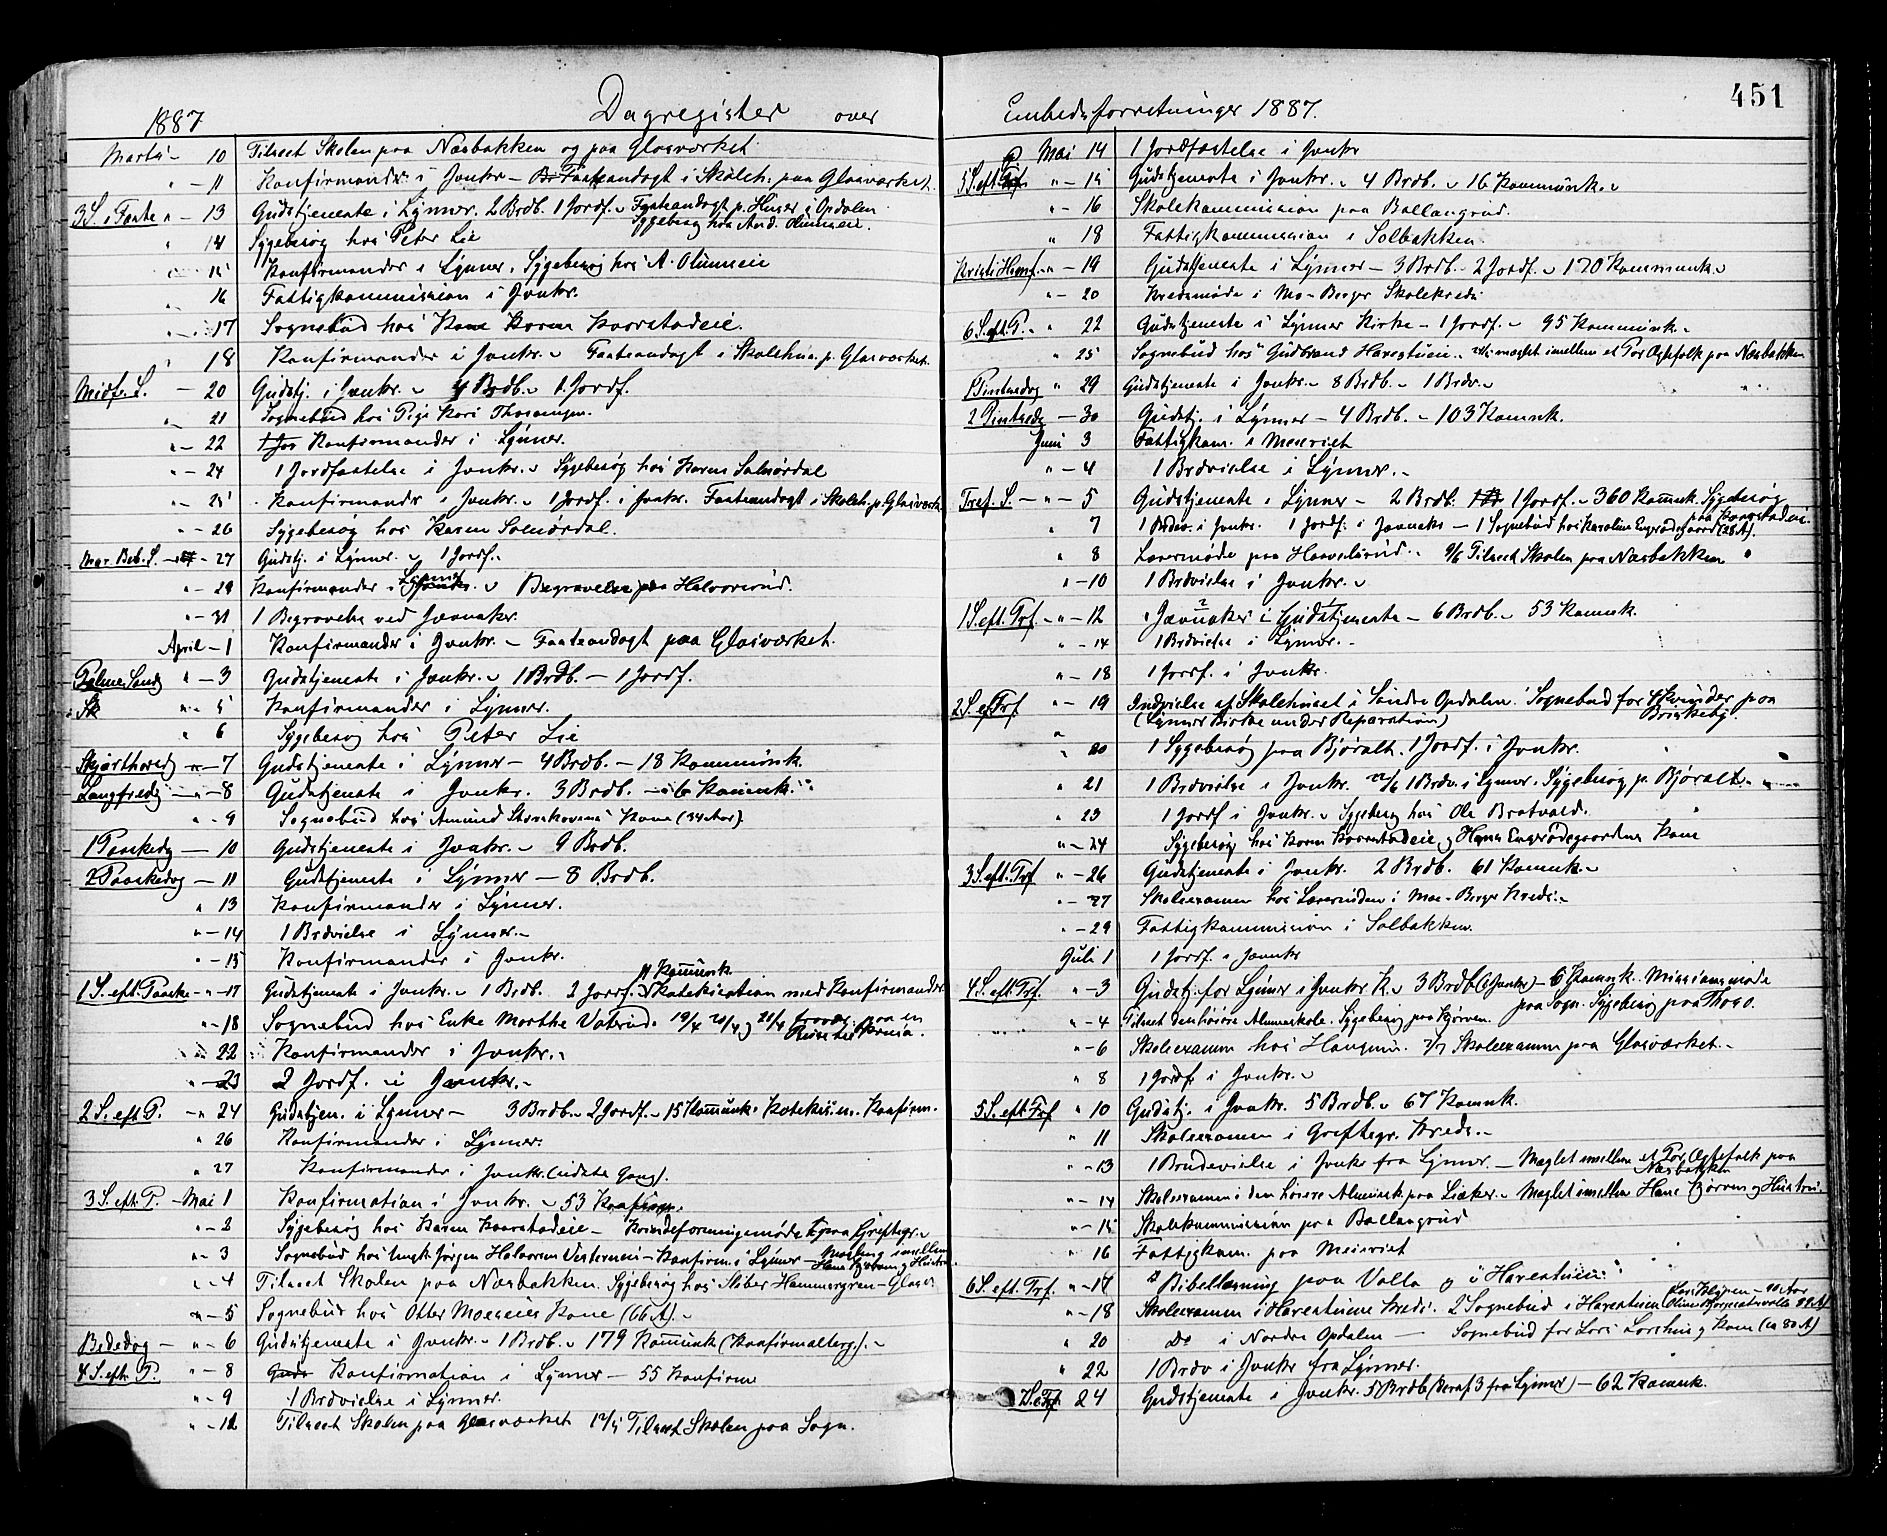 451
1887 Dagregister over
Marts - 10 Tilseet Skolen paa Næsbakken og paa Glasværket
" - 11 Konfirmander i Jvnkr - Fasteandagt i Skoleh. paa Glasværket.
3 S. i Faste " - 13 Gudstjeneste i Lÿnner. 2 Brdb. 1 Jordf. - Fasteandagt p. Huser i Opdalen. Sygebesøg hos And. Olimseie.
" 14 Sygebesøg hos Peter Lie
" 15 Konfirmander i Lÿnner. Sygebesøg hos A. Olimseie
" 16 Fattigkommission i Jvnkr.
" - 17 Sognebud hos Karen Korstadeie.
" 18 Konfirmander i Jvnkr. - Fasteandagt i Skolehus. p. Glasværket.
Midf. S. - 20 Gudstj. i Jvnkr. - 4 Brdb. - 1 Jordf.
" 21 Sognebud hos Pige Kari Thoresengen.
" - 22 Konfirmander i Lÿnner.
" - 24 1 Jordfæstelse i Jvnkr. - Sygebesøg hos Karen Solsørdal
" - 25 Konfirmandr i Jvnkr. - 1 Jordf. i Jvnkr. Fasteandagt i Skoleh. p. Glasværket
" - 26 Sygebesøg hos Karen Solsørdal.
Mar. Beb. S. - 27 Gudstj. i Lÿnner. - 1 Jordf.
" - 29 Konfirmander i Lynner - Begravelse paa Halvorsrud.
" - 31 1 Begravelse ved Jævnaker.
April - 1 Konfirmander i Jvnkr. - Fasteandagt paa Glasværket.
Palme Sønd " - 3 Gudstjeneste i Jvnkr. - 1 Brdb. - 1 Jordf.
Sk " - 5 Konfirmander i Lÿnner.
" 6 Sygebesøg hos Peter Lie
Skjærthorsd " - 7 Gudstjeneste i Lÿnner - 4 Brdb. - 18 Kommunk.
Langfredg - " - 8 Gudstjeneste i Jvnkr. 3 Brdb. - 6 Kommk.
" - 9 Sognebud hos Amund Kone (34 Aar).
1 Paaskedg - 10 Gudstjeneste i Jvnkr. - 9 Brdb.
2 Paaskedag - 11 Gudstjeneste i Lÿnner - 8 Brdb.
" 13 Konfirmander i Lÿnner.
" - 14 1 Brdvielse i Lÿnner. -
" - 15 Konfirmander i Jvnkr.
1 S. eft. Paaske - " - 17 Gudstjeneste i Jvnkr. - 1 Brdb. 2 Jordf. 11 Kommunk. Katekisation med Konfirmander
" - 18 Sognebud hos Enke Marthe Vaterud. 19/4 20/4 og 21/4 fravær. paa en Reise til Krnia.
" - 22 Konfirmander i Jvnkr. -
" - 23 2 Jordf. i Jvnkr. -
2 S. eft P. - " 24 Gudstjen. i Lynner - 3 Brdb. - 2 Jordf. - 15 Kommunk. Katekisn. Konfirm.
" 26 Konfirmander i Lÿnner.
" 27 Konfirmander i Jvnkr. (sidste Gang).
3 S. eft. P. - Mai 1 Konfirmation i Jvnkr. - 53 Konfirm.
" - 2 Sygebesøg hos Karen Korstadeie - Kvindeforeningsmøde paa Grefsgr. -
" - 3 Sognebud hos Ungk. Jørgen Halvorsen Vesterneie - Konfirm. i Lÿnner - Mægling imellem Hans Bjørven og Hustru
" - 4 Tilseet Skolen paa Næsbakken. Sygebesøg hos Sliber Hammergren - Glasv
" - 5 Sognebud hos Otter Moeseies Kone (66 A). -
Bededag - " - 6 Gudstjeneste i Jvnkr. - 1 Brdb. - 179 Kommunk (Konfirmaltergj.). -
4 S. eft. P. " - 8 Konfirmation i Lÿnner - 55 Konfirm
" - 9 1 Brdvielse i Lÿnner.
" - 12 Tilseet Skolen paa Glasværket 12/5 Tilseet Skolen paa Sogn.
Embedsforretninger 1887.
Mai 14 1 Jordfæstelse i Jvnkr
5 S. eft. P. " - 15 Gudstjeneste i Jvnkr. - 4 Brdb. - 16 Kommunk. -
" - 16 Skolekommission paa Ballangrud.
" 18 Fattigkommission i Solbakken.
Kristi Himf. " - 19 Gudstjeneste i Lÿnner - 3 Brdb. - 2 Jordf. - 170 Kommunk. -
" - 20 Kredsmøde i Mo-Berger Skolekreds.
6 S. eft. P. - " 22 Gudstjeneste i Lÿnner Kirke - 1 Jordf. - 95 Kommunk. -
" 25 Sognebud hos Gudbrand Harestueie. - mæglet imellem et Par Ægtefolk paa Næsbakken
1 Pintsedag " 29 Gudstjeneste i Jvnkr. - 8 Brdb. - 1 Brdv. -
2 Pintsedg - 30 Gudstj. i Lÿnner - 4 Brdb. - 103 Komnk.
Juni 3 Fattigkom. i Meieriet
" - 4 1 Brdvielse i Lÿnner. -
Tref. S. - " - 5 Gudstjeneste i Lÿnner - 2 Brdb. 1 Jordf. - 360 Komnk. Sygebesøg paa Korstadeie.
" 7 1 Brdv. i Jvnkr. 1 Jordf. i Jævnakr - 1 Sognebud hos Karoline Engnæsgaard (28 A).
" 8 Læremøde paa Haavelsrud. - 9/6 Tilseet Skolen paa Næsbakken
" - 10 1 Brdvielse i Jvnkr. -
1 S. eft. Trf. - " - 12 Jævnaker i Gudstjeneste - 6 Brdb. - 53 Komnk.
" - 14 1 Brdvielse i Lÿnner. -
" - 18 1 Jordf. i Jvnkr.
2 S. ef. Trf. " - 19 Indvielse af Skolehuset i Søndre Opdalen. Sognebud for 4 Kvinder paa Briskeby.
(Lynner Kirke under Reparation)
" 20 1 Sygebesøg paa Bjøralt. 1 Jordf. i Jvnkr.
" 21 1 Brdvielse i Jvnkr. 22/6 1 Brdv. i Lynner. Sygebesøg p. Bjøralt.
" 23 1 Jordf i Jvnkr. - Sygebesøg hos Ole Bratvold.
" - 24 Sygebesøg hos Karen Korstadeie og Hans Engnæsgaardens Kone
3 S. eft. Trf " - 26 Gudstjeneste i Jvnkr. 2 Brdb. 61 Komnk. -
" - 27 Skoleexamen hos Læreruden i Moe-Berger Kreds. -
" - 29 Fattigkommission i Solbakken.
Juli 1 1 Jordf. i Jvnkr
4 S. eft Trf. " - 3 Gudstj. for Lÿnner i Jvnkr K. - 3 Brdb (Jvnkr) - 6 Komnk. Missionsmøde paa Sogn. Sygebesøg paa Thoso.
" - 4 Tilseet den høiere Almueskole. Sygebesøg paa Bjørven.
" - 6 Skoleexamen hos Haugnes. 7/7 Skoleexamen paa Glasværket. -
" 8 1 Jordf. i Jvnkr. -
5 S. eft Trf " 10 Gudstj. i Jvnkr. 5 Brdb. - 67 Komnk.
" 11 Skoleexamen i Grefsgr. Kreds. -
" - 13 1 Brudevielse i Jvnkr fra Lynner. - Mæglet imellem et Par Ægtefolk paa Næsbakken
" - 14 Skoleexamen i den høiere Almuesk. paa Liaker. - Mæglet imellem Hans Bjørven og Hustru.
" - 15 Skolekommission paa Ballangrud
" 16 Fattigkom. paa Meieriet
6 S. eft. Trf. " - 17 Bibellæsning paa Volla og i Harestuen.
" - 18 Skoleexamen i Harestuens Kreds. 2 Sognebud i Harestuen
" 20 Do i Nordre Opdalen - Sognebud for Lars og Kone (ca 80 A)
" 22 1 Brdv i Jvnkr fra Lÿnner.
7 S. e. Trf. 24 Gudstjeneste i Jvnkr. 5 Brdb (deraf 3 fra Lynner) - 62 Komnk.